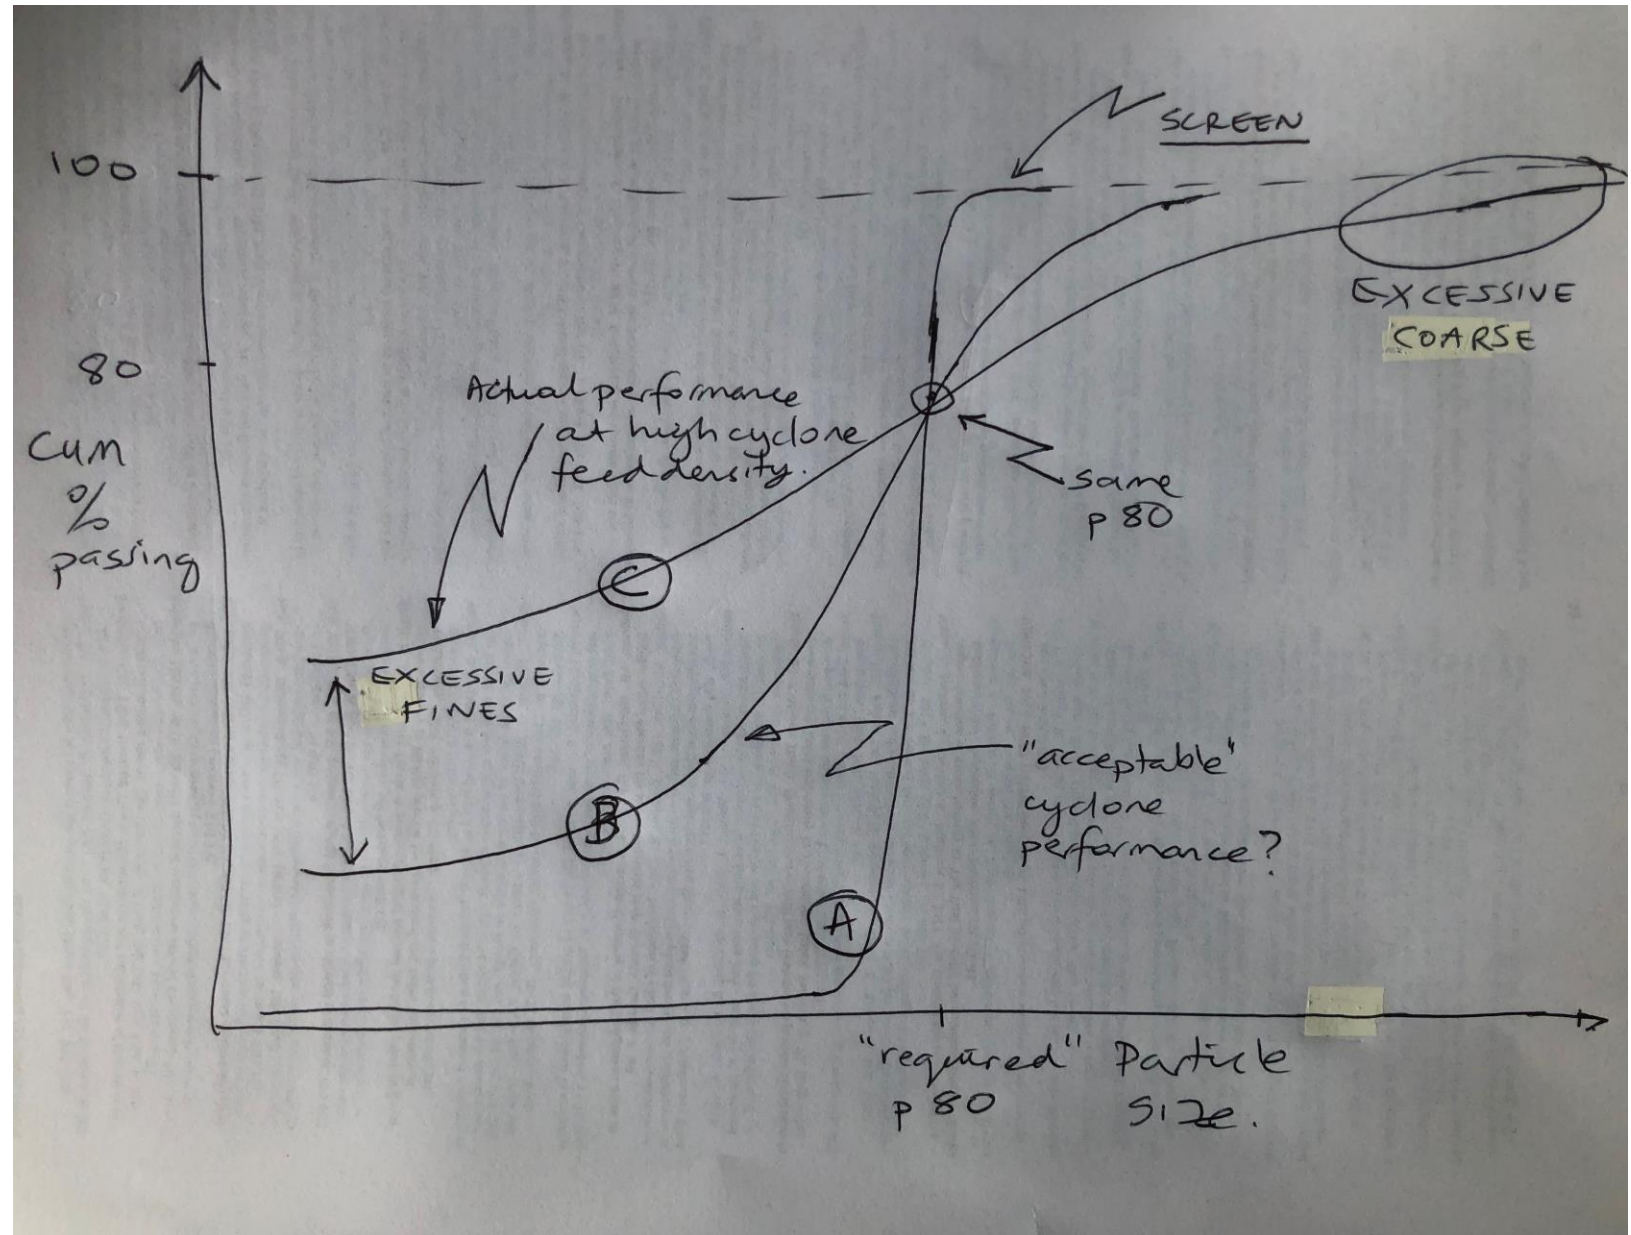 SCREEN
100
EXCESSIVE
COARSE
80
Actual performance
at high cyclone
feed density.
Cum
%
passing
same
p 80
C
EXCESSIVE
FINES
"acceptable"
cyclone
performance?
B
A
"required"
p 80
Particle
size.